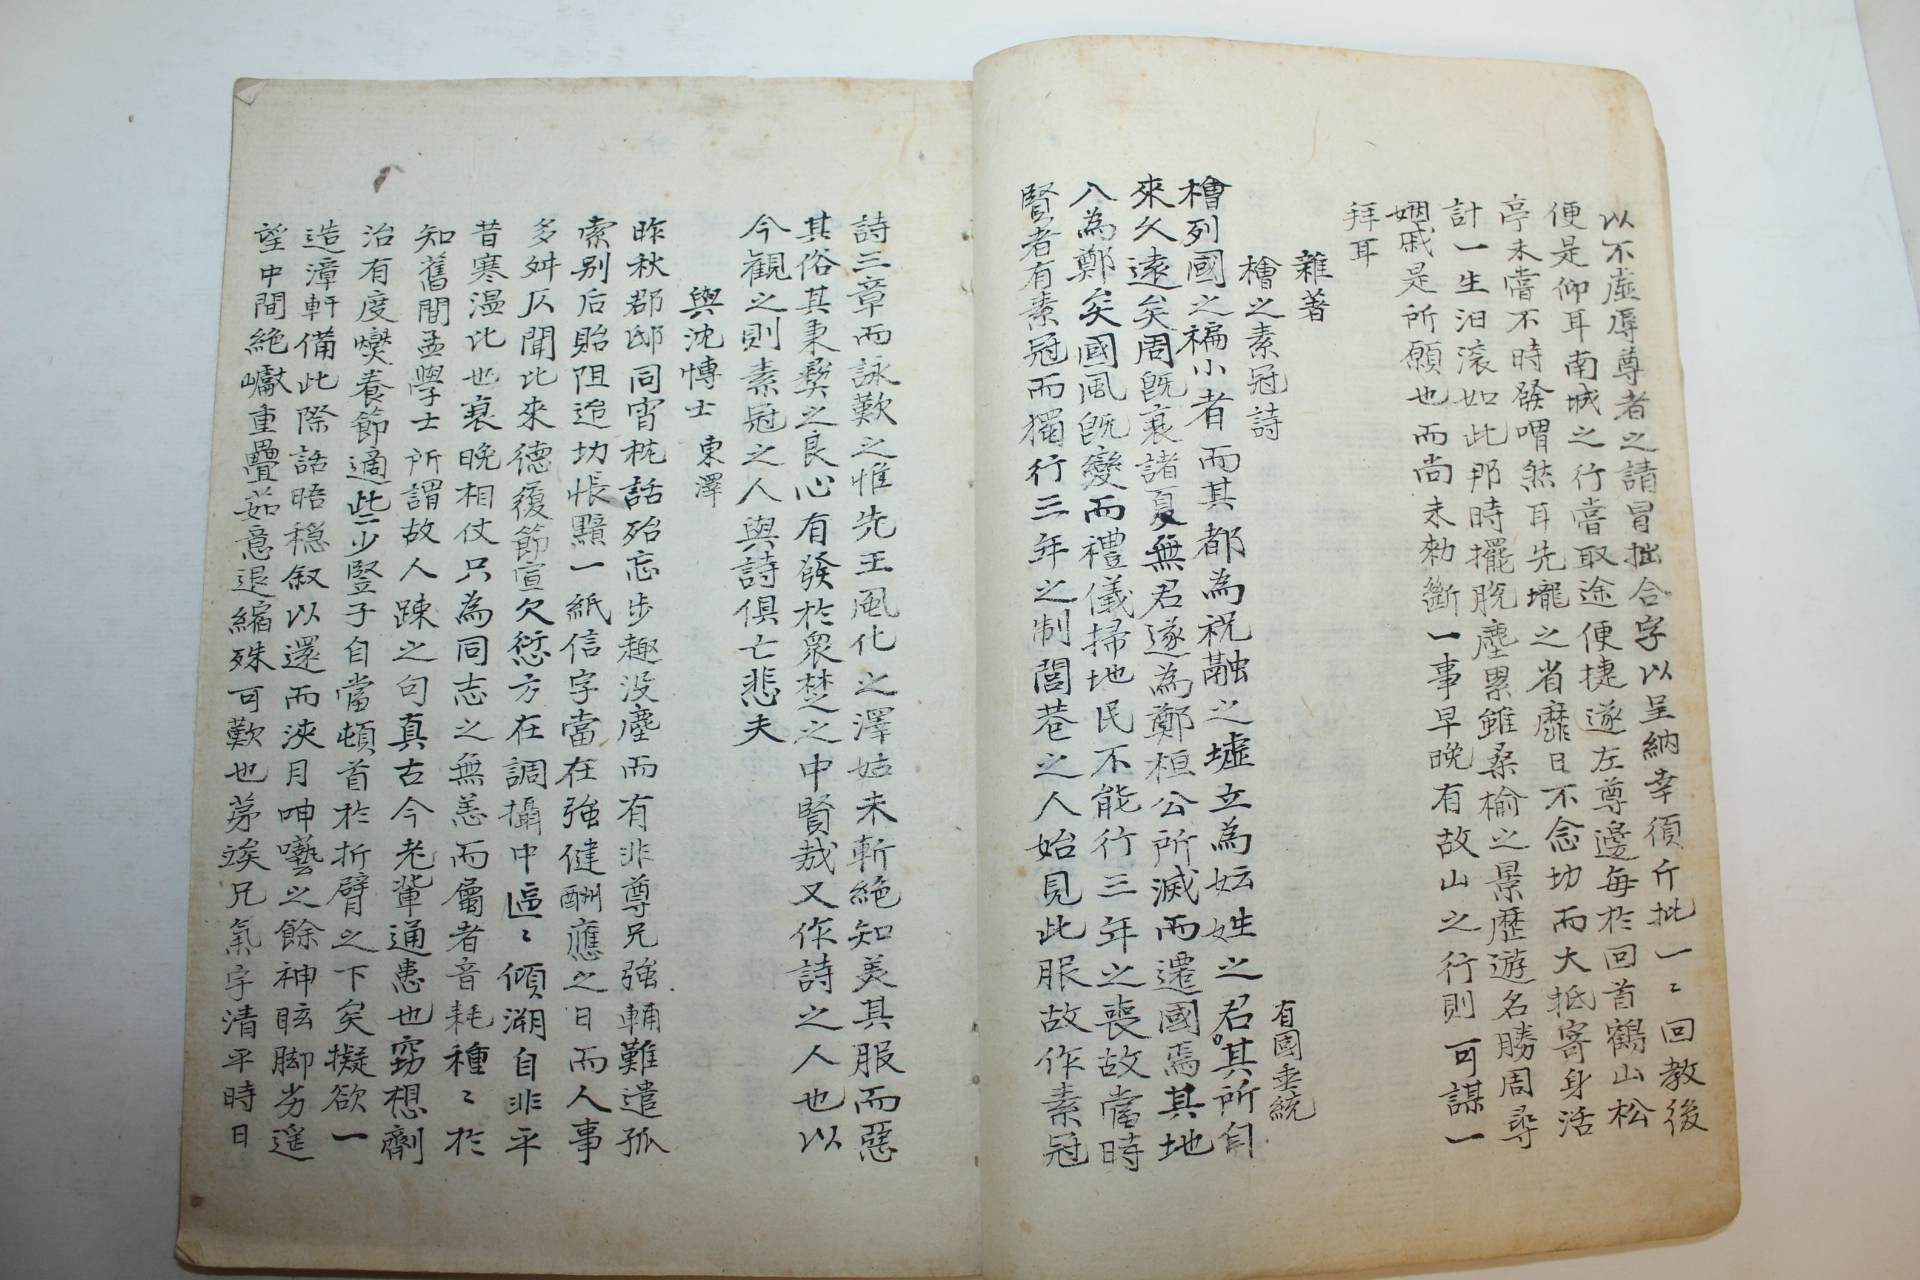 以不虛辱尊者之請冒拙合字以呈納幸須斤批一〻回教後
便是仰耳南城之行嘗取途便捷遂左尊邊每於回首鶴山松
亭未嘗不時發喟然耳先壠之省靡日不念切而大抵寄身活
計一生汩滾如此那時擺脫塵累雖桑榆之景歷遊名勝周尋
姻戚是所願也而尚未勑斷一事早晚有故山之行則可謀一
拜耳
雜著
檜之素冠詩
有國垂統
檜列國之褊小者而其都為祝融之墟立為妘姓之君其所自
來久遠矣周旣衰諸夏無君遂為鄭桓公所滅而遷國焉其地
入為鄭矣國風旣變而禮儀掃地民不能行三年之喪故當時
賢者有素冠而獨行三年之制閭巷之人始見此服故作素冠
詩三章而詠歎之惟先王風化之澤姑未斬絶知美其服而惡
其俗其秉彜之良心有發於衆楚之中賢哉又作詩之人也以
今觀之則素冠之人與詩俱亡悲夫
與沈愽士 東澤
昨秋郡邸同宵枕話殆忘步趣没塵而有非尊兄強輔難遣孤
索別后貽阻迨切悵黯一紙信字當在強健酬應之日而人事
多舛仄聞比來德履節宣欠愆方在調攝中區〻傾溯自非平
昔寒温比也衰晚相仗只為同志之無恙而屬者音耗種〻於
知舊間孟學士所謂故人踈之句真古今老輩通患也窃想劑
治有度爕養節適些少竪子自當頓首於折臂之下矣擬欲一
造漳軒備此際話晤穏叙以還而浹月呻囈之餘神眩脚劣遥
望中間絶巘重疊茹意退縮殊可歎也茅埃兄氣字清平時日